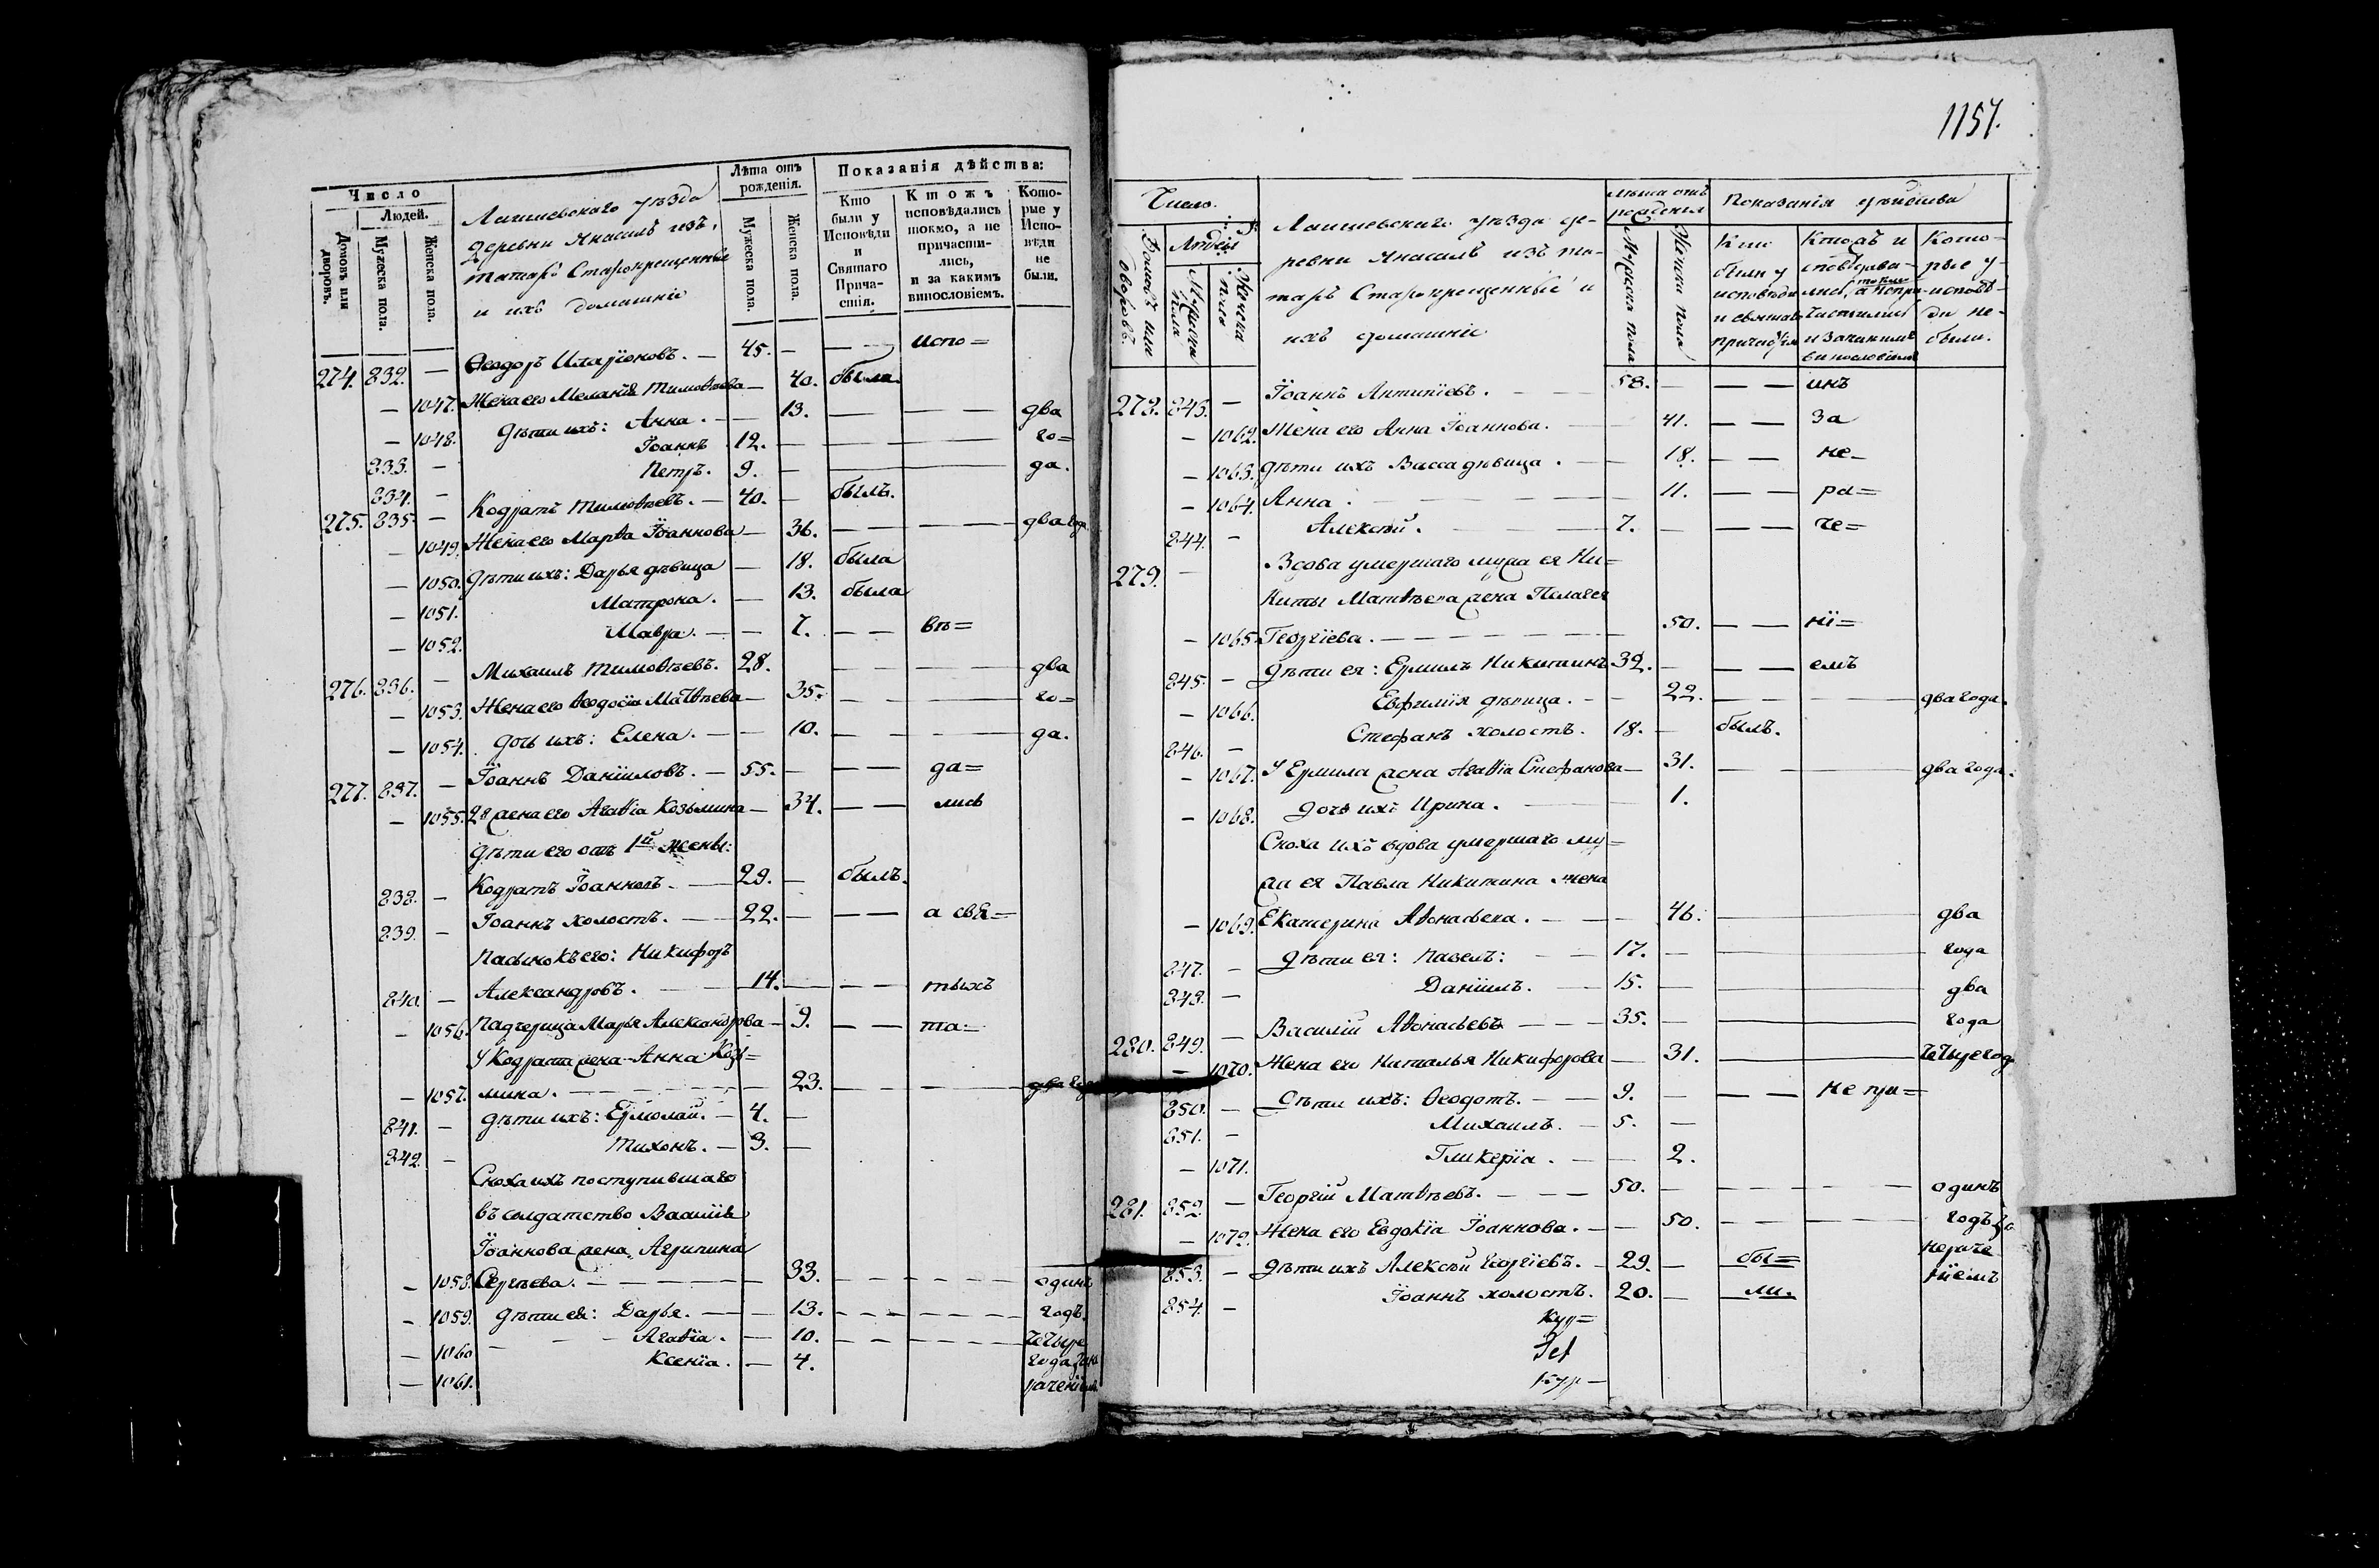 Число
Людей.
Домовъ или дворовъ.
Мужеска пола.
Женска пола.
Лаишевскаго уѣзда
деревни Янасалъ изъ
татаръ Старокрещенные
и ихъ домашніе
Лѣта отъ рожденія.
Мужеска пола.
Женска пола.
Показанія дѣйства:
Кто были у Исповѣди и Святаго Прича-стія.
Ктожъ исповѣдались токмо, а не причасти-лись, и за какимъ винословіемъ.
Кото-рые у Испо-вѣди не были.
274. 832. — Ѳеодоръ Иларіоновъ. — 45. — — — испо=
— 1047. Жена его Меланія Тимоѳеева — 40. была.
— 1048. Дѣти ихъ: Анна. — — 13. — — — два
833. — Іоаннъ 12. — го=
834. — Петръ. 9. — да.
275. 835. — Кодратъ Тимоѳѣевъ. — 40. — былъ.
— 1049. Жена его Марѳа Іоаннова — 36. — — — два года
— 1050. Дѣти ихъ: Дарья дѣвица — 18. была
— 1051. Матрона. — 13. была
— 1052. Мавра. — — 7. — — въ=
276. 836. — Михаилъ Тимоѳѣевъ. 28. — два
— 1053. Жена его Ѳеодосія Матѳѣева — 35. — — го=
— 1054. Дочь ихъ: Елена. — — 10. — — — да.
277. 837. — Іоаннъ Даніиловъ. — 55. — — — да=
— 1055. 2я жена его Агаѳія Козьмина — 34. — — лись
Дѣти его отъ 1й жены:
838. — Кодратъ Іоанновъ. — 29. — былъ.
839. — Іоаннъ холостъ. — 22. — — — а свя=
Пасынокъ его: Никифоръ
840. — Александровъ. — 14. — — — тыхъ
— 1056. Падчерица Марья Александрова — 9. — — та=
У Кодрата жена Анна Козь=
— 1057. мина. — — — 23. — — — два года
841. — Дѣти ихъ: Ермолай. — 4. —
842. — Тихонъ. — 3. —
Сноха ихъ поступившаго
въ солдатство Василія
Іоаннова жена Агрипина
— 1058. Сергѣева. — — — 33. — — — одинъ
— 1059. Дѣти ея: Дарья. — — 13. — — — годъ.
— 1060 — — Агаѳія. — 10. — — — четыре
— 1061. Ксенія. — 4. года за не
раченіемъ
1157.
Число.
Людей
Домовъ или дворовъ.
Мужеска пола
Женска пола
Лаишевскаго уѣзда де-
ревни Янасалъ изъ та-
таръ Старокрещенные и
ихъ домашніе
лѣта отъ рожденія
Мужеска пола
Женска пола
Показанія дѣйства
Кто были у исповѣди и святаго причастія
Ктожъ исповѣдва-лись токмо, а не при-частились и за какимъ винословіемъ
Кото-рые у исповѣ-ди не-были.
278. 843. — Іоаннъ Антипіевъ. — 58. — — — инъ
— 1062. Жена его Анна Іоаннова. — 41. — — за
— 1063. Дѣти ихъ Васса дѣвица. — 18. — — не-
— 1064. Анна. — — — 11. — — ра=
844. — Алексѣй. — 7. — — — че=
279. — Вдова умершаго мужа ея Ни=
киты Матвѣева жена Пелагея
— 1065. Георгіева. — — — 50. — — ні=
845. — Дѣти ея: Ермилъ Никитинъ 32. — — — емъ
— 1066. Евфимія дѣвица. — — 22. — — — два года.
846. — Стефанъ холостъ. 18. — былъ.
— 1067. У Ермила жена Агаѳія Стефанова — 31. — — два года.
— 1068. Дочь ихъ Ирина. — 1.
Сноха ихъ вдова умершаго му=
жа ея Павла Никитина жена
— 1069. Екатерина Аѳонасьева. — — 46. — два
847. — Дѣти ея: Павелъ: — — 17. — года
848. — Даніилъ. — 15. — два
280. 849. — Василій Аѳонасьевъ — — — 35. — года
— 1070. Жена его Наталья Никифорова — 31. — четыре года
850. — Дѣти ихъ: Ѳеодотъ. — — 9. — — — не при=
851. — Михаилъ. — 5. —
— 1071. Гликерія. — — 2.
281. 852. — Георгій Матѳѣевъ. — — — 50. — — — — одинъ
— 1072. Жена его Евдокія Іоаннова. — — 50. — — — годъ за
853. — Дѣти ихъ Алексѣй Георгіевъ. — 29. — бы= нераче
854. — Іоаннъ холостъ. 20. — ли. ніемъ